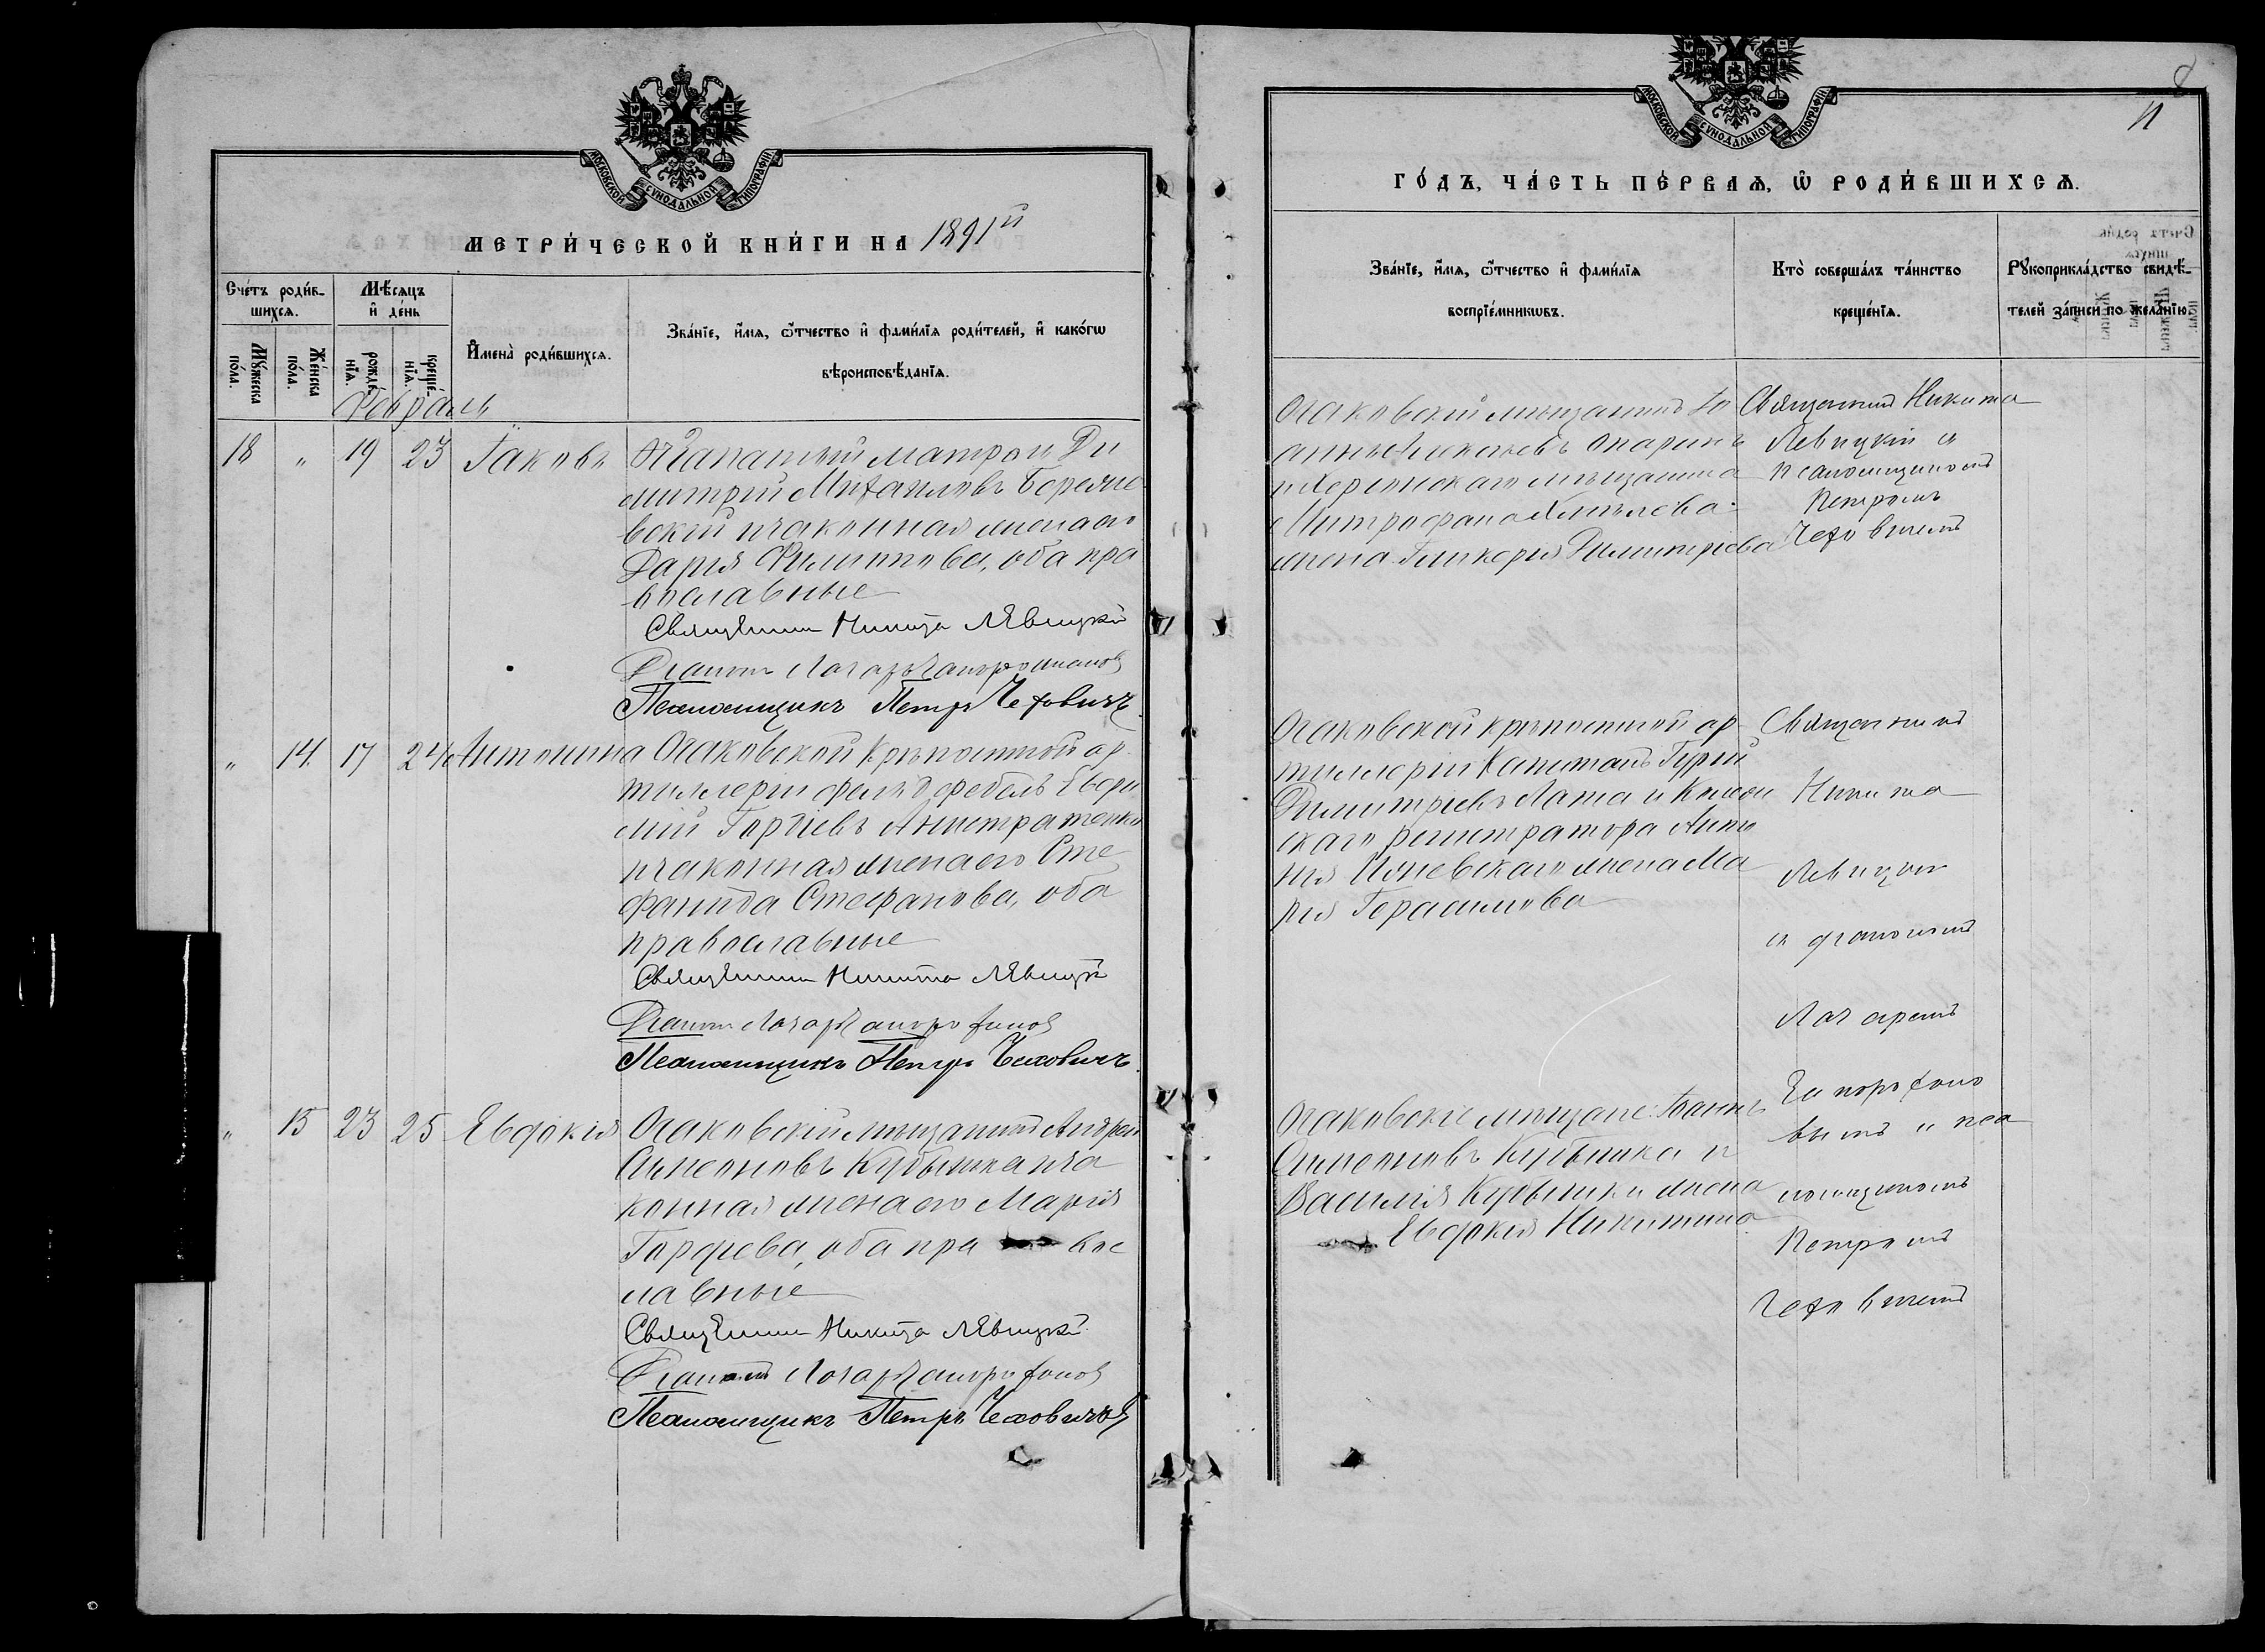 МОСКОВСКОЙ СѴНОДАЛЬНОЙ ТИПОГРАФІИ
МЕТРИ́ЧЕСКОЙ КНИ́ГИ НА 1891й
Сче́тъ роди́в-
шихсѧ.
Мꙋ́жеска
по́ла.
Же́нска
по́ла.
Мѣ́сѧцъ
и҆ де́нь
рожде́-
нїѧ.
креще́-
нїѧ.
И҆мена̀ роди́вшихсѧ.
Зва́нїе, и҆́мѧ, ѻ҆́тчество и҆ фами́лїѧ роди́телей, и҆ како́гѡ
вѣроисповѣ́данїѧ.
Февраль
18 " 19 23 Іаковъ
Димитрій Михаиловъ
вскій и законная жена его
Дарія Филиппова, оба пра
вославные
Священникъ Никита Левицкій
Діаконъ Лазарь
Псаломщикъ Петръ Чеховичъ.
" 14. 17 24 Антонина Очаковской крѣпостной ар
тиллеріи фельдфебель
и законная жена его Сте
фанида Стефанова, оба
православные
Священникъ Никита Левицкій
Діаконъ Лазарь
Псаломщикъ Петръ Чеховичъ.
" 15 23 25 Евдокія Очаковскій мѣщанинъ Андрей
Симеоновъ Кубышка и за
конная жена его Марія
оба пра вос
лавные
Священникъ Никита Левицкій
Діаконъ Лазарь
Псаломщикъ Петръ Чеховичъ
МОСКОВСКОЙ СѴНОДАЛЬНОЙ ТИПОГРАФІИ
8
ГО́ДЪ, ЧА́СТЬ ПЕ́РВАѦ, Ѡ҆ РОДИ́ВШИХСѦ.
Зва́нїе, и҆́мѧ, ѻ҆́тчество и҆ фами́лїѧ
воспрїе́мникѡвъ.
Кто̀ соверша́лъ та́инство
креще́нїѧ.
Рꙋкоприкла́дство свидѣ́-
телей за́писи по жела́нїю.
Очаковскій мѣщанинъ Іо
аннъ
и Херсонскаго мѣщанина
Митрофана
жена Гликерія Димитріева
Священникъ Никита
Левицкій и
псаломщикомъ
Петромъ
Чеховичемъ
Очаковской крѣпостной ар
тиллеріи Капитанъ Гурій
Димитріевъ и Коллеж
скаго регистратора Анто
нія жена Ма
рія Герасимова
Священникъ
Никита
Левицкій
и діакономъ
Лазаремъ
вымъ и пса
ломщикомъ
Петромъ
Чеховичемъ
Очаковскіе мѣщане: Іоаннъ
Симеоновъ Кубышка и
Василія Кубышки жена
Евдокія Никитина